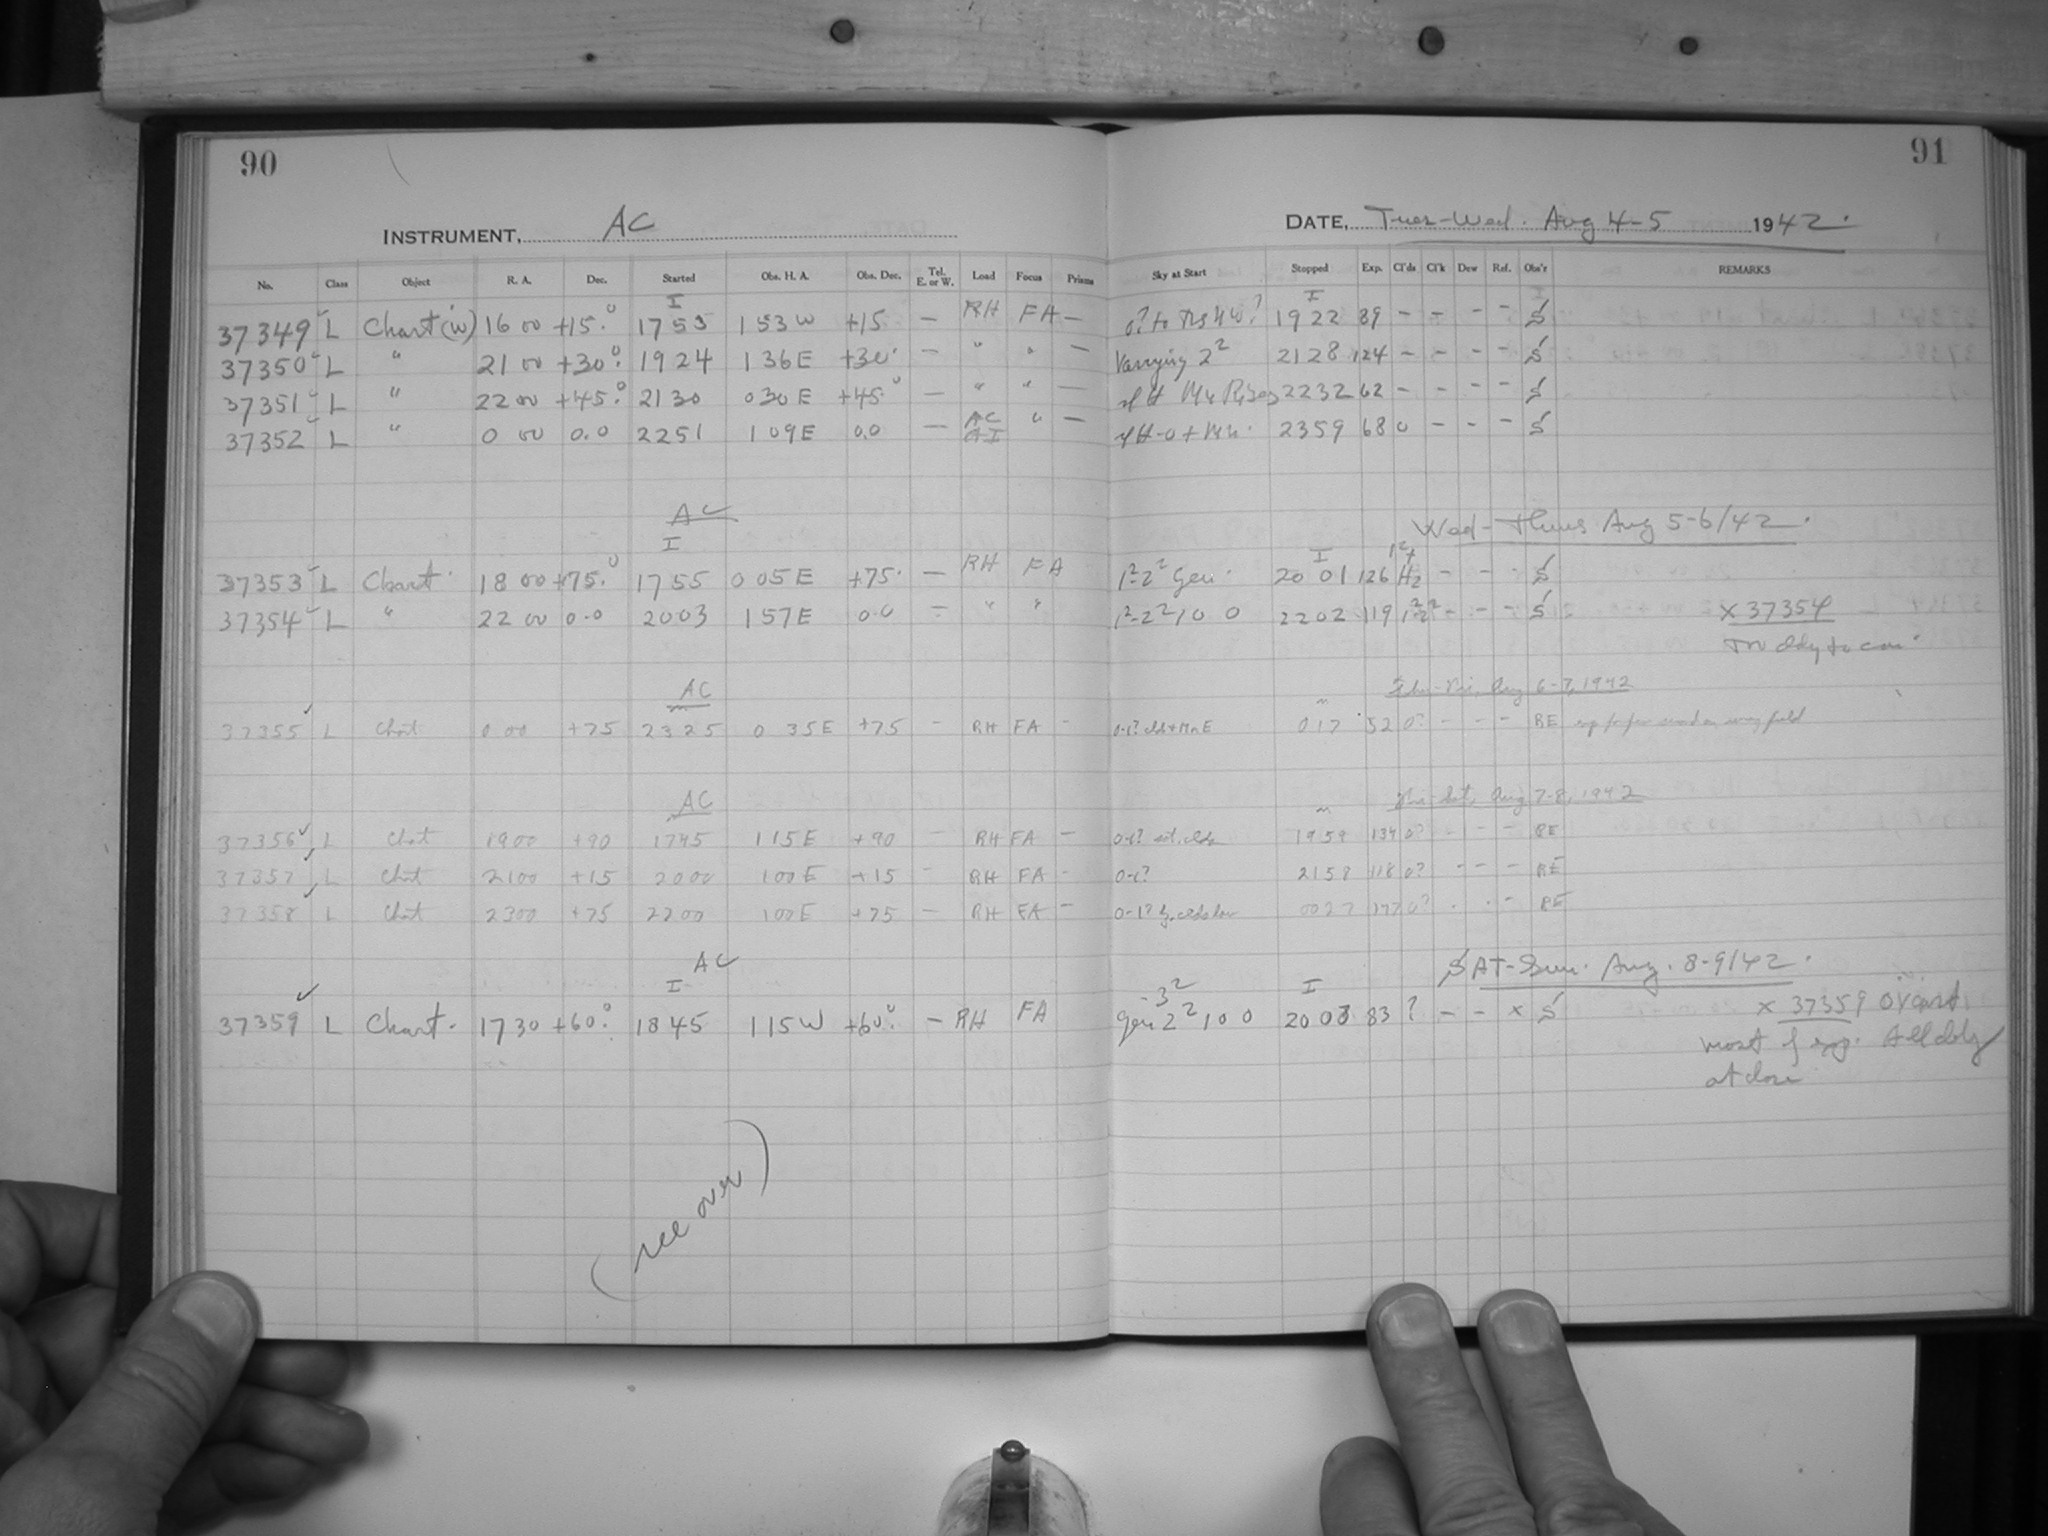 90
91
INSTRUMENT, AC
DATE, Tues-Wed. Aug 4-5 1942.
No. Class Object R. A. Dec. Started Obs. H. A. Obs. Dec. Tel. E. or W. Load Focus Prisms Sky at Start Stopped Exp. Cl'ds Cl'k Dew Ref. Obs'r REMARKS
I I
37349 L Chart (W) 16 00 +15.° 1753 1 53 W +15 — RH FA — 1922 89 - - - - S
37350 L " 21 00 +30°. 1924 1 36 E +30. — " " — Varying 2² 2128 124 - - - - S
37351 L " 22 00 +45.° 2130 0 30 E +45° — " " — 2232 62 - - - - S
37352 L " 0 00 0.0 2251 1 09 E 0.0 — AC " — 2359 68 0 - - - S
AC Wed-Thurs Aug 5-6/42.
I I
37353 L Chart. 18 00 +75.° 1755 0 05 E +75. — RH FA 1²-2² Gen. 2001 126 - - - S
37354 L " 22 00 0.0 2003 1 57 E 0.0 — " " 1²-2² 100 2202 119 1²-2² - - - S X 37354
Too cldy to con.
AC Thu-Fri, Aug 6-7, 1942
37355 L Chart 0 00 +75 2325 0 35 E +75 - RH FA - 0-1? clds+Mn E 017 52 0? - - - RE
AC Fri-Sat, Aug 7-8, 1942
37356 L Chart 1900 +90 1745 1 15 E +90 - RH FA - 0-1? 1959 134 0? - - - RE
37357 L Chart 2100 +15 2000 1 00 E +15 - RH FA - 0-1? 2158 118 0? - - - RE
37358 L Chart 2300 +75 2200 1 00 E +75 - RH FA - 0-1? 0027 147 0? - - - RE
AC SAT-Sun. Aug. 8-9/42.
I I
37359 L Chart. 17 30 +60.° 1845 1 15 W +60°. — RH FA gen 2² -3² 100 2008 83 ? - - x S X 37359 Ov'cast
most of exp. All cldy
at close
(see over)